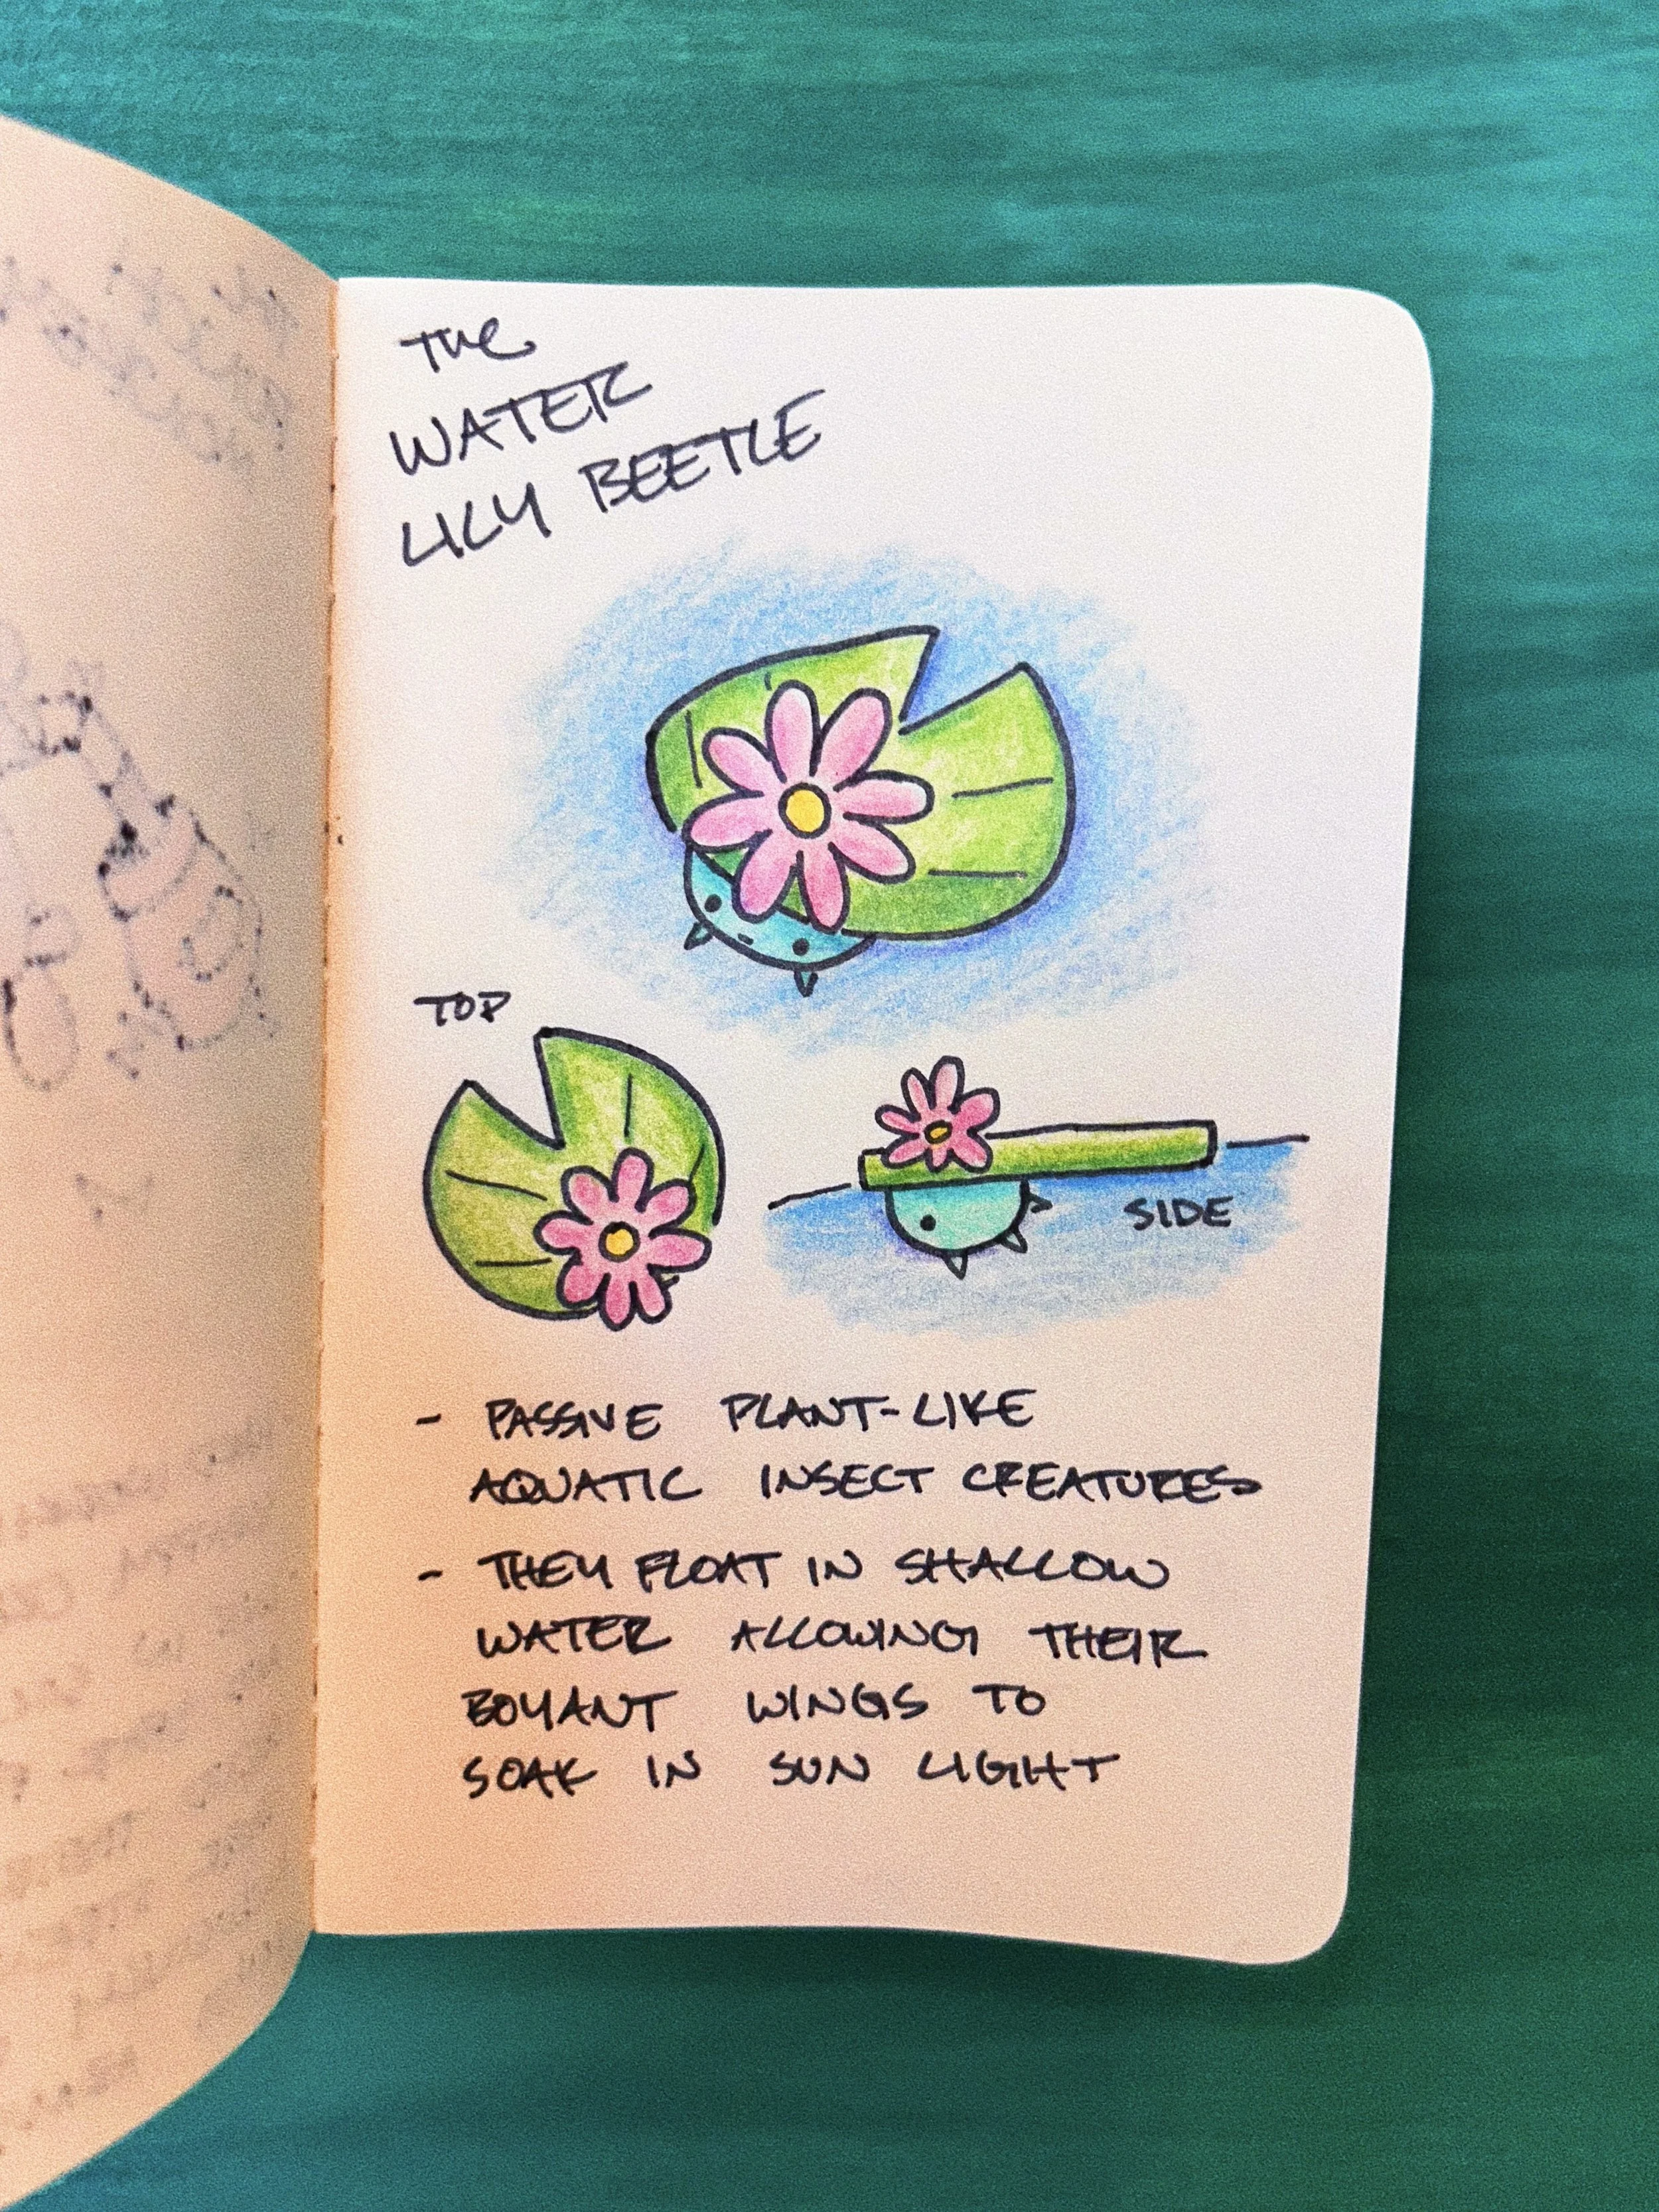 The
WATER
LILY BEETLE
TOP
SIDE
- PASSIVE PLANT-LIKE
AQUATIC INSECT CREATURES
- THEY FLOAT IN SHALLOW
WATER ALLOWING THEIR
BOYANT WINGS TO
SOAK IN SUN LIGHT